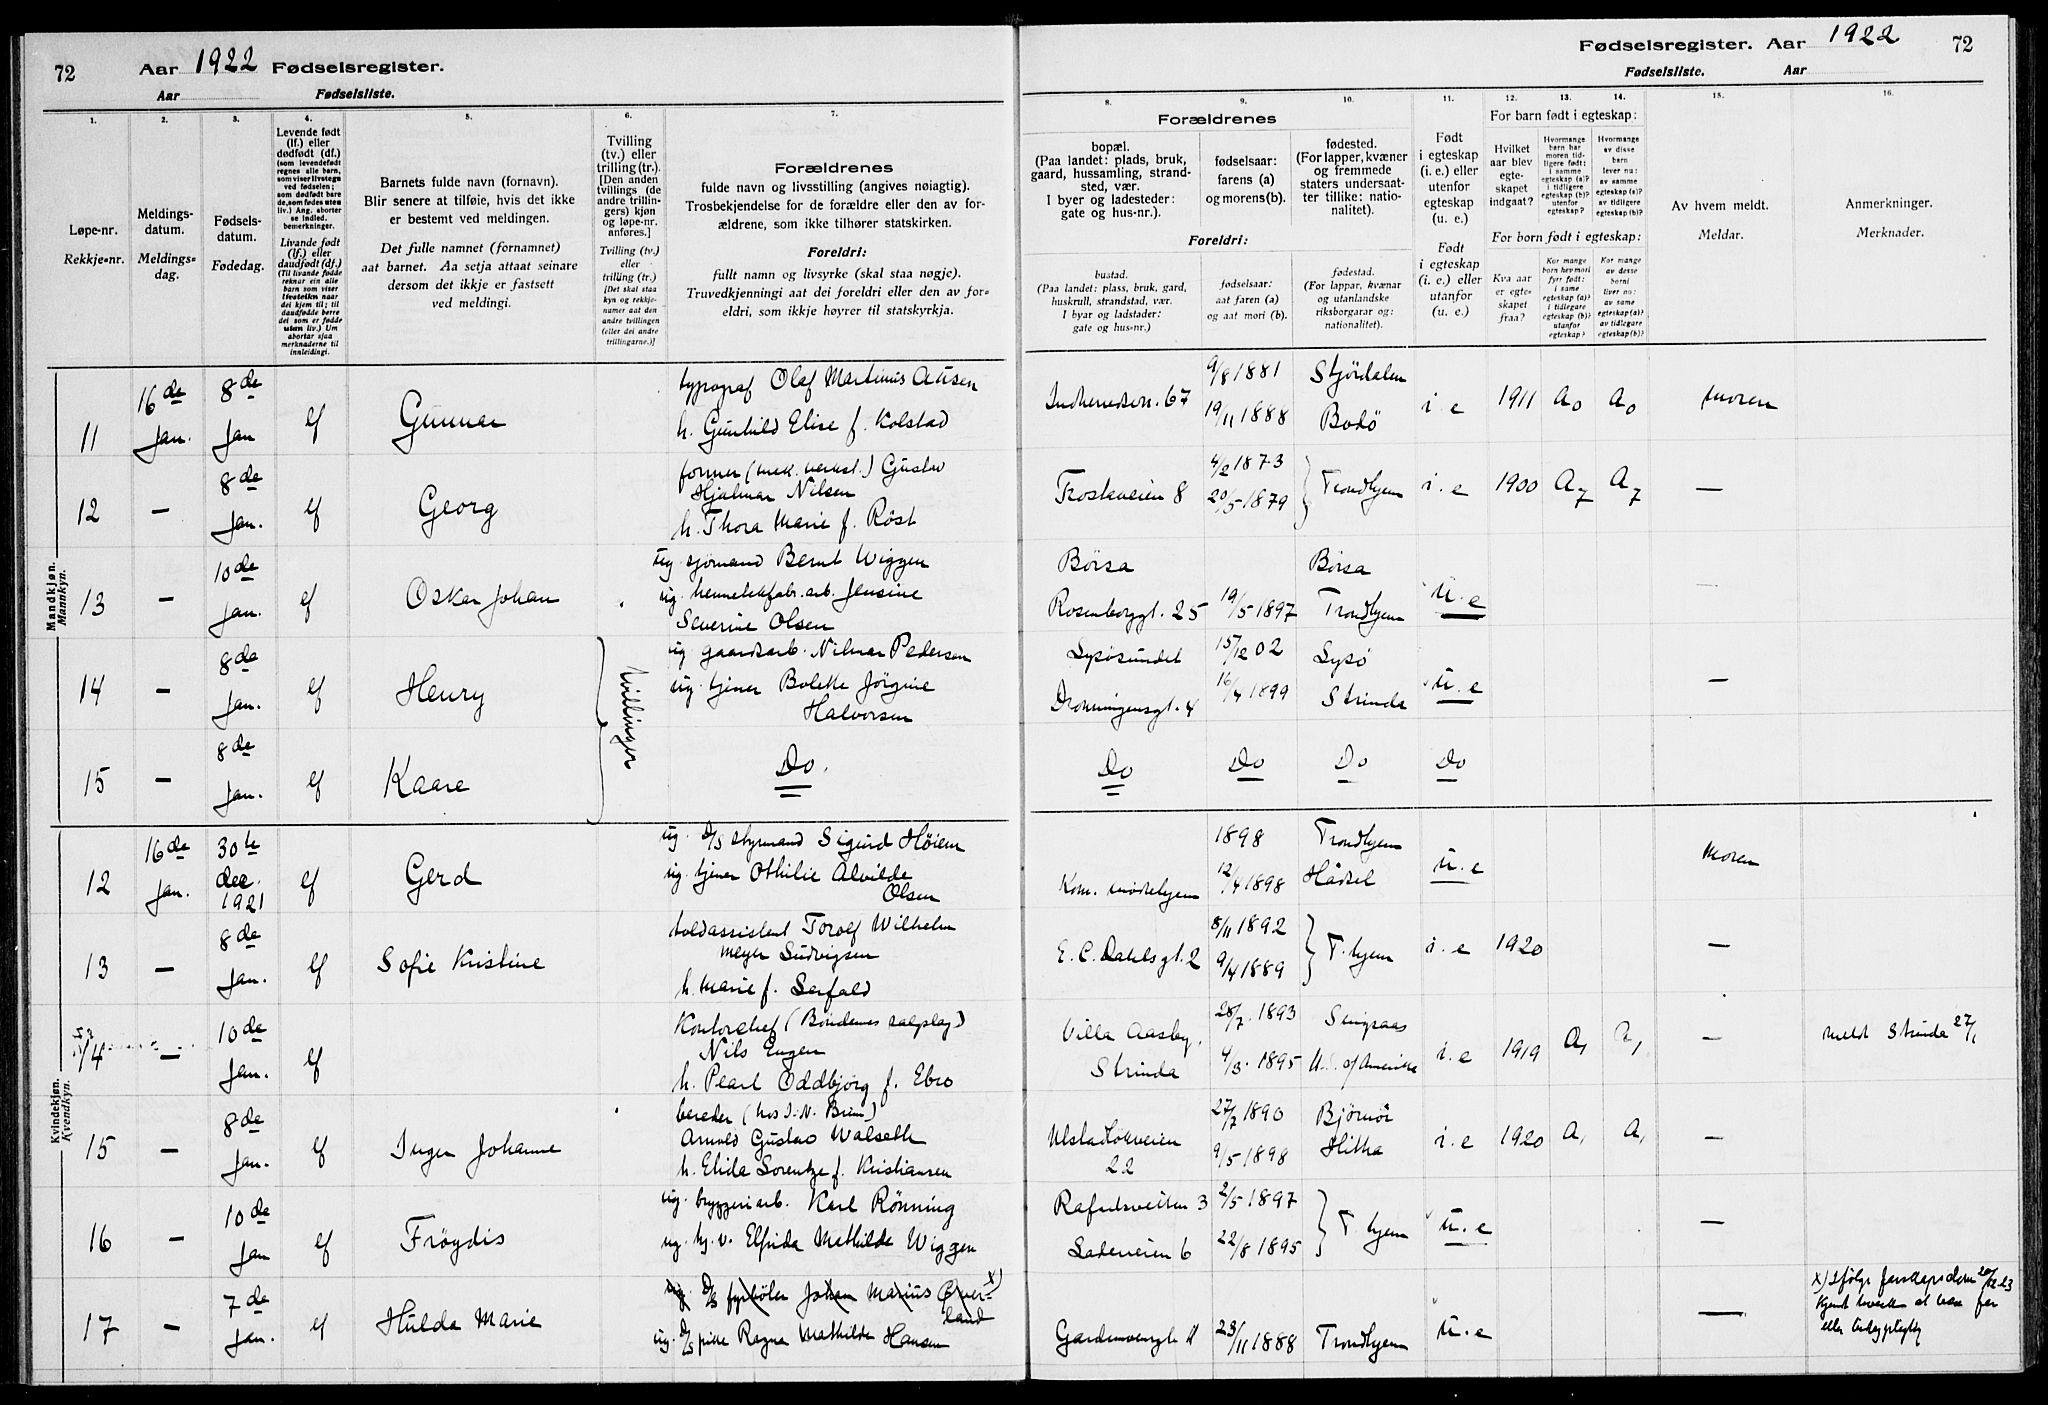 72 Aar 1922 Fødselsregister.
Aar Fødselsliste.
Fødselsregister. Aar 1922 72
Fødselsliste. Aar
1. 2. 3. 4. 5. 6. 7.
Løpe-nr.
Rekkje-nr.
Meldings-
datum.
Meldings-
dag.
Fødsels-
datum.
Fødedag.
Levende født
(lf.) eller
dødfødt (df.)
(som levendefødt
regnes alle barn,
som viser livstegn
ved fødselen;
som dødfødt bare
de, som fødes uten
liv.) Ang. aborter
se indled.
bemerkninger.
Livande født
(lf.) eller
daudfødt (df.)
(Til livande fødde
reknar ein alle
barn som viser
livsteikn naar
dei kjem til; til
daudfødde berre
dei som er fødde
utan liv.) Um
abortar sjaa
merknaderne til
innleidingi.
Barnets fulde navn (fornavn).
Blir senere at tilføie, hvis det ikke
er bestemt ved meldingen.
Det fulle namnet (fornamnet)
aat barnet. Aa setja attaat seinare
dersom det ikkje er fastsett
ved meldingi.
Tvilling
(tv.) eller
trilling (tr.).
[Den anden
tvillings (de
andre trillin-
gers) kjøn
og løpe-nr.
anføres.]
Tvilling (tv.)
eller
trilling (tr.)
[Det skal staa
kyn og rekkje-
numer aat den
andre tvillingen
(eller dei andre
trillingarne.)]
Forældrenes
fulde navn og livsstilling (angives nøiagtig).
Trosbekjendelse for de forældre eller den av for-
ældrene, som ikke tilhører statskirken.
Foreldri:
fullt namn og livsyrke (skal staa nøgje).
Truvedkjenningi aat dei foreldri eller den av for-
eldri, som ikkje høyrer til statskyrkja.
8. 9. 10. 11. 12. 13. 14. 15. 16.
Forældrenes
bopæl.
(Paa landet: plads, bruk,
gaard, hussamling, strand-
sted, vær.
I byer og ladesteder:
gate og hus-nr.).
fødselsaar:
farens (a)
og morens (b).
fødested.
(For lapper, kvæner
og fremmede
staters undersaat-
ter tillike: natio-
nalitet).
Foreldri:
bustad.
(Paa landet: plass, bruk, gard,
huskrull, strandstad, vær.
I byar og ladstader:
gate og hus-nr.)
fødselsaar:
aat faren (a)
og aat mori (b).
fødestad.
(For lappar, kvænar
og utanlandske
riksborgarar og:
nationalitet).
Født
i egteskap
(i. e.) eller
utenfor
egteskap
(u. e.)
Født
i egteskap
(i. e.) eller
utanfor
(u. e.)
For barn født i egteskap:
Hvilket
aar blev
egte-
skapet
indgaat?
Hvormange
barn har
moren tid-
ligere født:
i samme
egteskap (a)?
i tidligere
egteskap (b)?
utenfor
egteskap?
Hvormange
av disse
barn
lever nu:
av samme
egteskap (a)?
av tidligere
egteskap (b)?
For born født i egteskap:
Kva aar
er egte-
skapet
fraa?
Kor mange
born hev mori
fyrr født:
i same
egteskap (a)?
i tidlegare
egteskap (b)?
utanfor
egteskap?
Kor mange
av desse
borni
liver nu:
av same
egteskap (a)?
av tidlegare
egteskap (b)?
Av hvem meldt.
Meldar.
Anmerkninger.
Merknader.
Mandkjøn.
Mannkyn.
11 16de Jan. 8de Jan lf Gunnar
typograf Olaf Martinus Ausen
h. Gunhild Elise f. Kolstad
67 9/8 1881 Stjørdalen
19/11 1888 Bodø i. e 1911 a0 a0 moren
12 — 8de Jan. lf Georg
former (mek. verkst.) Gustav
Hjalmar Nilsen
h. Thora Marie f. Røst
8 4/2 1873
20/5 1879 Trondhjem i. e 1900 a7 a7 —
13 — 10de Jan. lf Oskar Johan
ug. sjømand Bernt Wiggen
ug. hermetikfabr. arb. Jensine
Severine Olsen
Børsa Børsa
Rosenborggt. 25 19/5 1897 Trondhjem u. e —
14 — 8de Jan. lf Henry tvillinger
ug gaardsarb. Nilmar Pedersen
ug. tjener Bolette Jørgine
Halvorsen
Lysøsundet 15/12 02 Lysø
Dronningensgt. 4 16/4 1899 Strinda u. e —
15 — 8de Jan. lf Kaare Do. Do Do Do Do
Kvindekjøn.
Kvendkyn.
12 16de Jan. 30te dec. 1921 lf Gerd
ug. D/S styrmand Sigurd Høiem
ug. tjener Othilie Alvilde
Olsen
1898 Trondhjem
Kom. mødrehjem 12/4 1898 Hadsel u. e Moren
13 — 8de Jan. lf Sofie Kristine
toldassistent Torolf Wilhelm
Meyer Ludvigsen
h. Marie f.
E. C. Dahls gt. 2 8/11 1892
9/4 1889 T.hjem i. e 1920 —
14 — 10de Jan. lf
Kontorchef (Bøndernes salgslag)
Nils Engen
h. Pearl Oddbjørg f. Ebro
Villa Aasby, 28/7 1893 Singsaas
Strinda 4/3. 1895 U. S. of Amerika i. e 1919 a1 a1 — meldt Strinda 27/1
15 — 8de Jan. lf Inger Johanne
bereder (hos I. N. Bruun)
Arnold Gustav Walseth
h. Elida Lorentze f. Kristiansen
27/7 1890 Bjørnør
22 9/5 1898 Hitra i. e 1920 a1 a1 —
16 — 10de Jan lf Frøydis
ug. bryggeriarb. Karl Rønning
ug. hj. v. Elfrida Mathilde Wiggen
3 2/5 1897
Ladeveien 6 22/8 1895 T hjem u. e —
17 — 7de Jan. lf Hulda Marie
ug. D/S fyrbøter Johan Marius Over- x)
land
ug. D/S pike Ragna Mathilde Hansen
23/11 1888 Trondhjem u. e —
x) Ifølge farskapsdom 20/12 23
eller